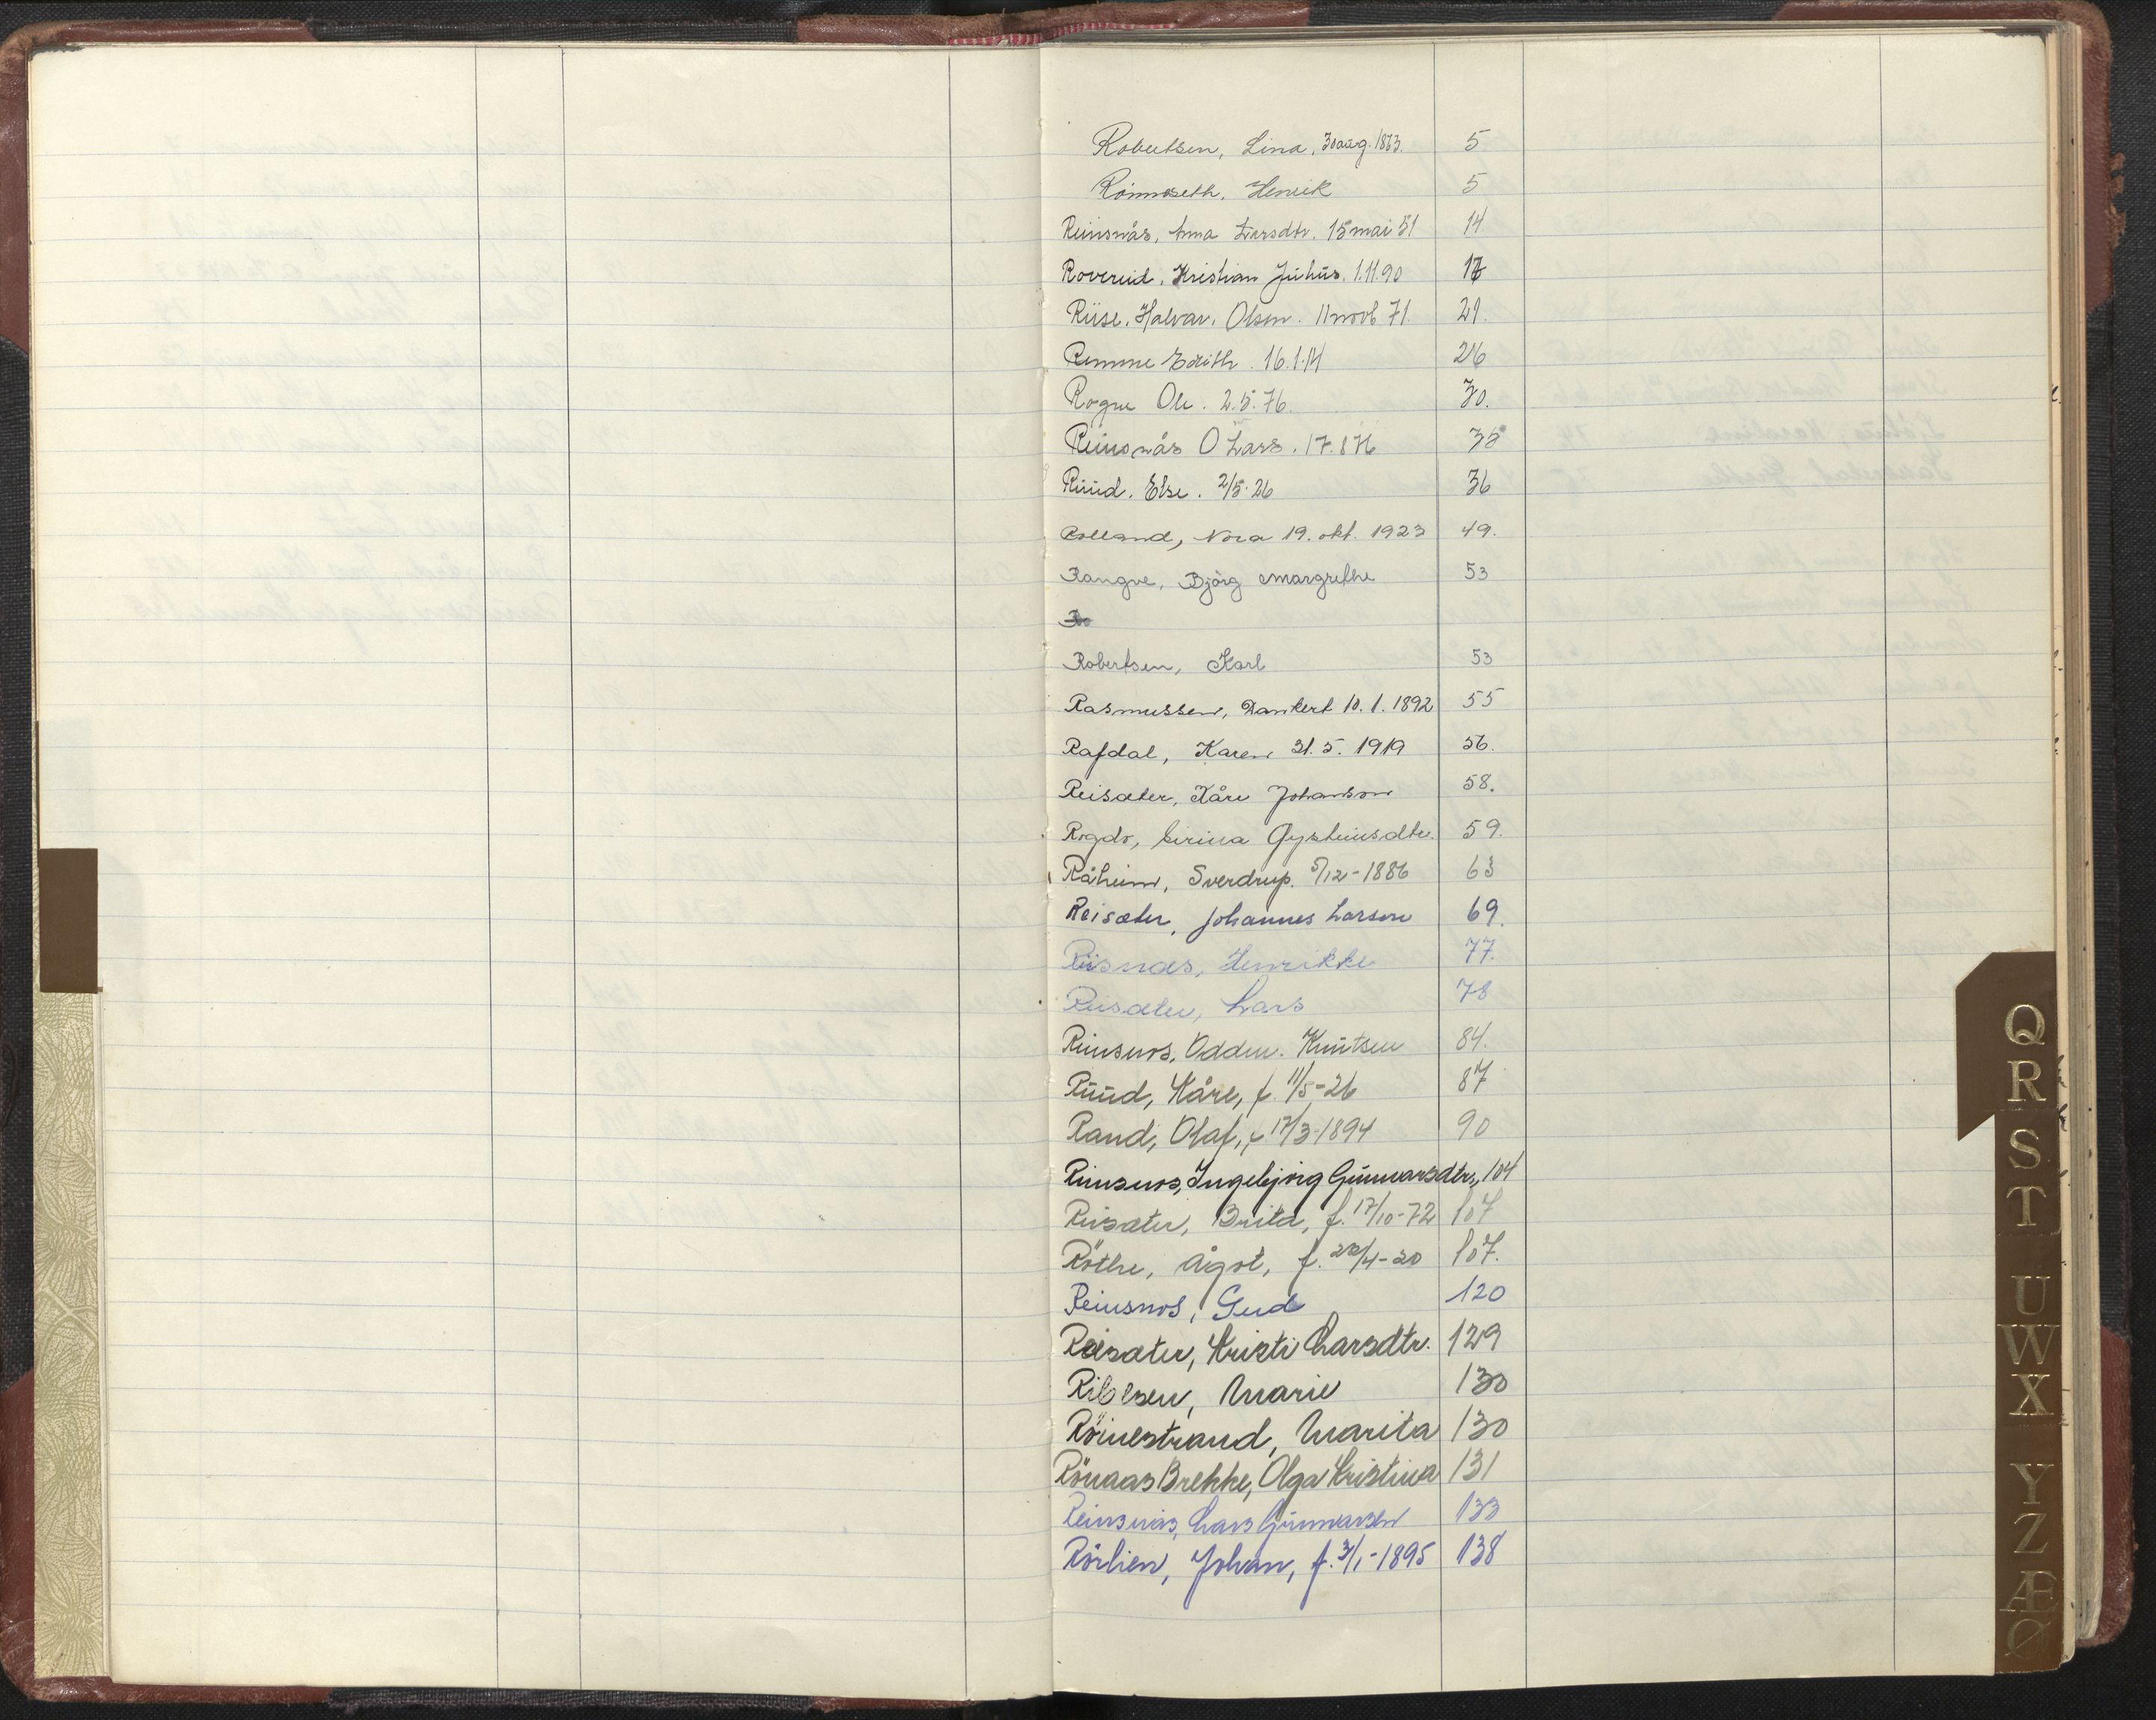 Robertsen, Lina, 30 aug. 1863. 5
Rönnseth, Henrik 5
Reinsnås, Anna Larsdtr. 15 mai 51 14
Rovereid, Kristian Julius. 1.11.90 17
Riise, Halvar. Olsen. 11 novb 71. 29.
Remme Edith. 16.1.14 26
Rogne Ole. 2.5.76. 30.
Reinsnås O Lars. 17.8 76 38
Ruud. Else. 2/5-26 36
Rolland, Nora 19. okt. 1923 49.
Rangve, Björg Margrethe 53
Ro
Robertsen, Karl 53
Rasmussen, Dankert 10.1.1892 55
Rafdal, Karen 31.5.1919 56.
Reisæter, Kåre Johanson 58.
Rogdo, Eirina Øysteinsdtr. 59.
Råheim, Sverdrup. 5/12-1886 63
Reisæter, Johannes Larsen 69.
Risnes, Henrikke 77.
Reisæter, Lars 78
Reinsnos, Odden. Knutsen 84.
Ruud, Kåre, f. 11/5-26 87
Rand, Olaf, f 17/3-1894 90
Reinsnos, Ingebjörg Gunnarsdtr., 104
Reisæter, Brita, f. 17/10-72 107
Röthe, Ågot, f. 28/4-20 107.
Reinsnos, Gud 120
Reisæter, Kristi Larsdtr. 129
Ribesen, Marie 130
Röinestrand, Marita 130
Rönaas Brekke, Olga Kristina 131
Reinsnos, Lars Gunnarsen 133
Rörlien, Johan, f. 3/1-1895 138
Q
R
S
T
U
W
X
Y
Z
Æ
Ø